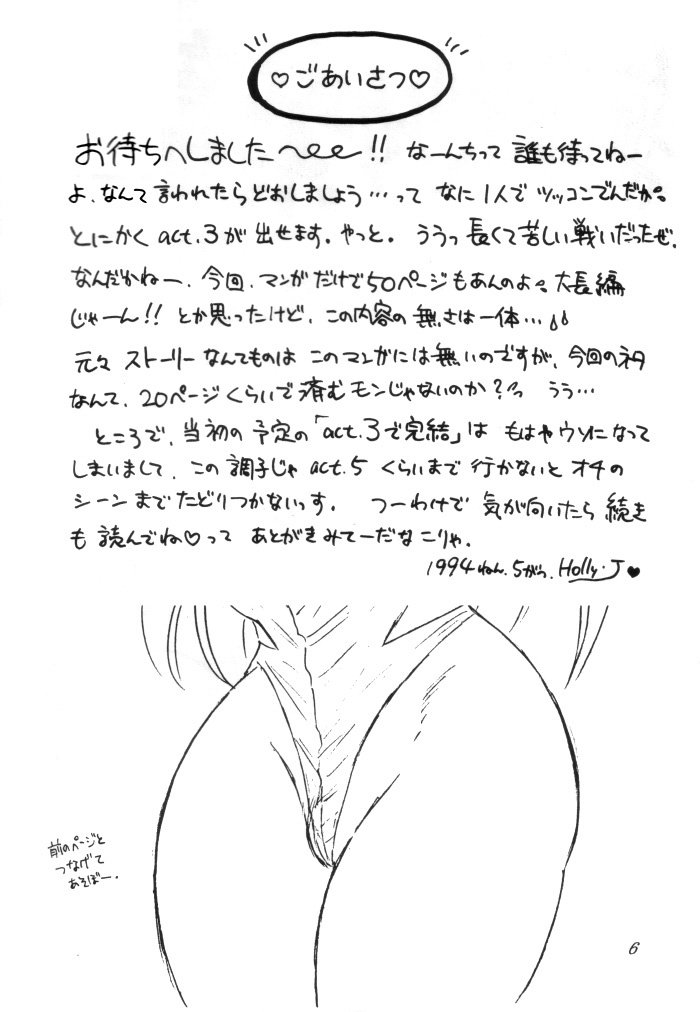 ♡ごあいさつ♡
お待ちへしました〜!! なーんちって 誰も待ってねー
よ、なんて 言われたらどおしましょう…って なに1人で ツッコンでんだか。
とにかく act.3が 出せます。やっと。 ううっ 長くて苦しい戦いだったぜ。
なんだかねー、今回、マンガだけで50ページもあんのよ。大長編
じゃーん!! とか思ったけど、この内容の 無さは一体…
元々 ストーリーなんてものは このマンガには無いのですが、今回のネタ
なんて、20ページくらいで済むモンじゃないのか?っ うう…
ところで、当初の 予定の「act.3で完結」は もはやウソになって
しまいまして、この 調子じゃ act.5 くらいまで 行かないと オチの
シーンまでたどりつかないっす。 つーわけで 気が向いたら 続き
も 読んでね♡って あとがきみてーだな こりゃ。
1994ねん.5がつ. Holly・J♥
前のページと
つなげて
あそぼー.
6